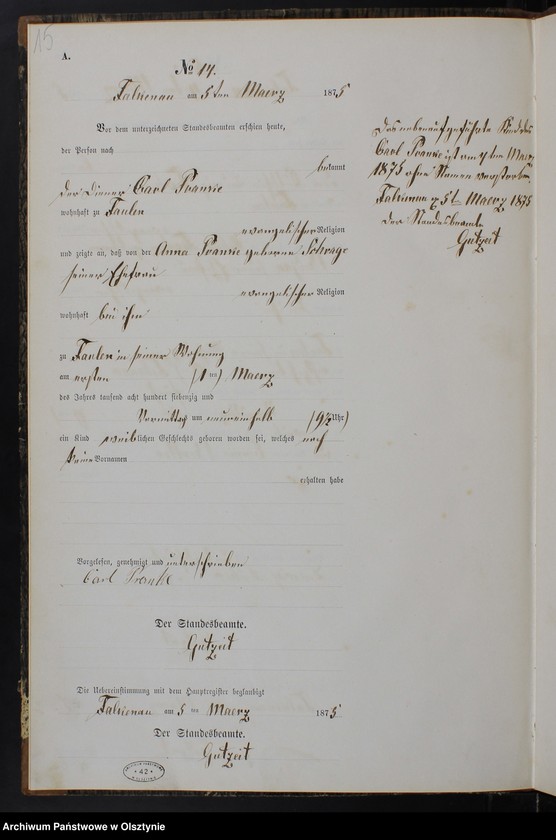 15
A.
No 14.
am 5ten Maerz 1875
Vor dem unterzeichneten Standesbeamten erschien heute,
der Person nach
bekannt
der Diener Carl
wohnhaft zu Faulen
evangelischer Religion
und zeigte an, daß von der Anna geborene
seiner Ehefrau
evangelischer Religion
wohnhaft bei ihm
zu Faulen in seiner Wohnung
am ersten (1ten) Maerz
des Jahres tausend acht hundert siebenzig und
Vormittag um neuneinhalb (9½ Uhr)
ein Kind weiblichen Geschlechts geboren worden sei, welches noch
keine Vornamen
erhalten habe
Vorgelesen, genehmigt und unterschrieben
Carl
Der Standesbeamte.
Gutzeit
Die Uebereinstimmung mit dem Hauptregister beglaubigt
am 5ten Maerz 1875
Der Standesbeamte.
Gutzeit
Das nebenaufgeführte Kind des
Carl ist am Maerz
1875 ohne Namen verstorben.
Maerz 1875
Der Standesbeamte
Gutzeit
42
Archiwum Państwowe w Olsztynie